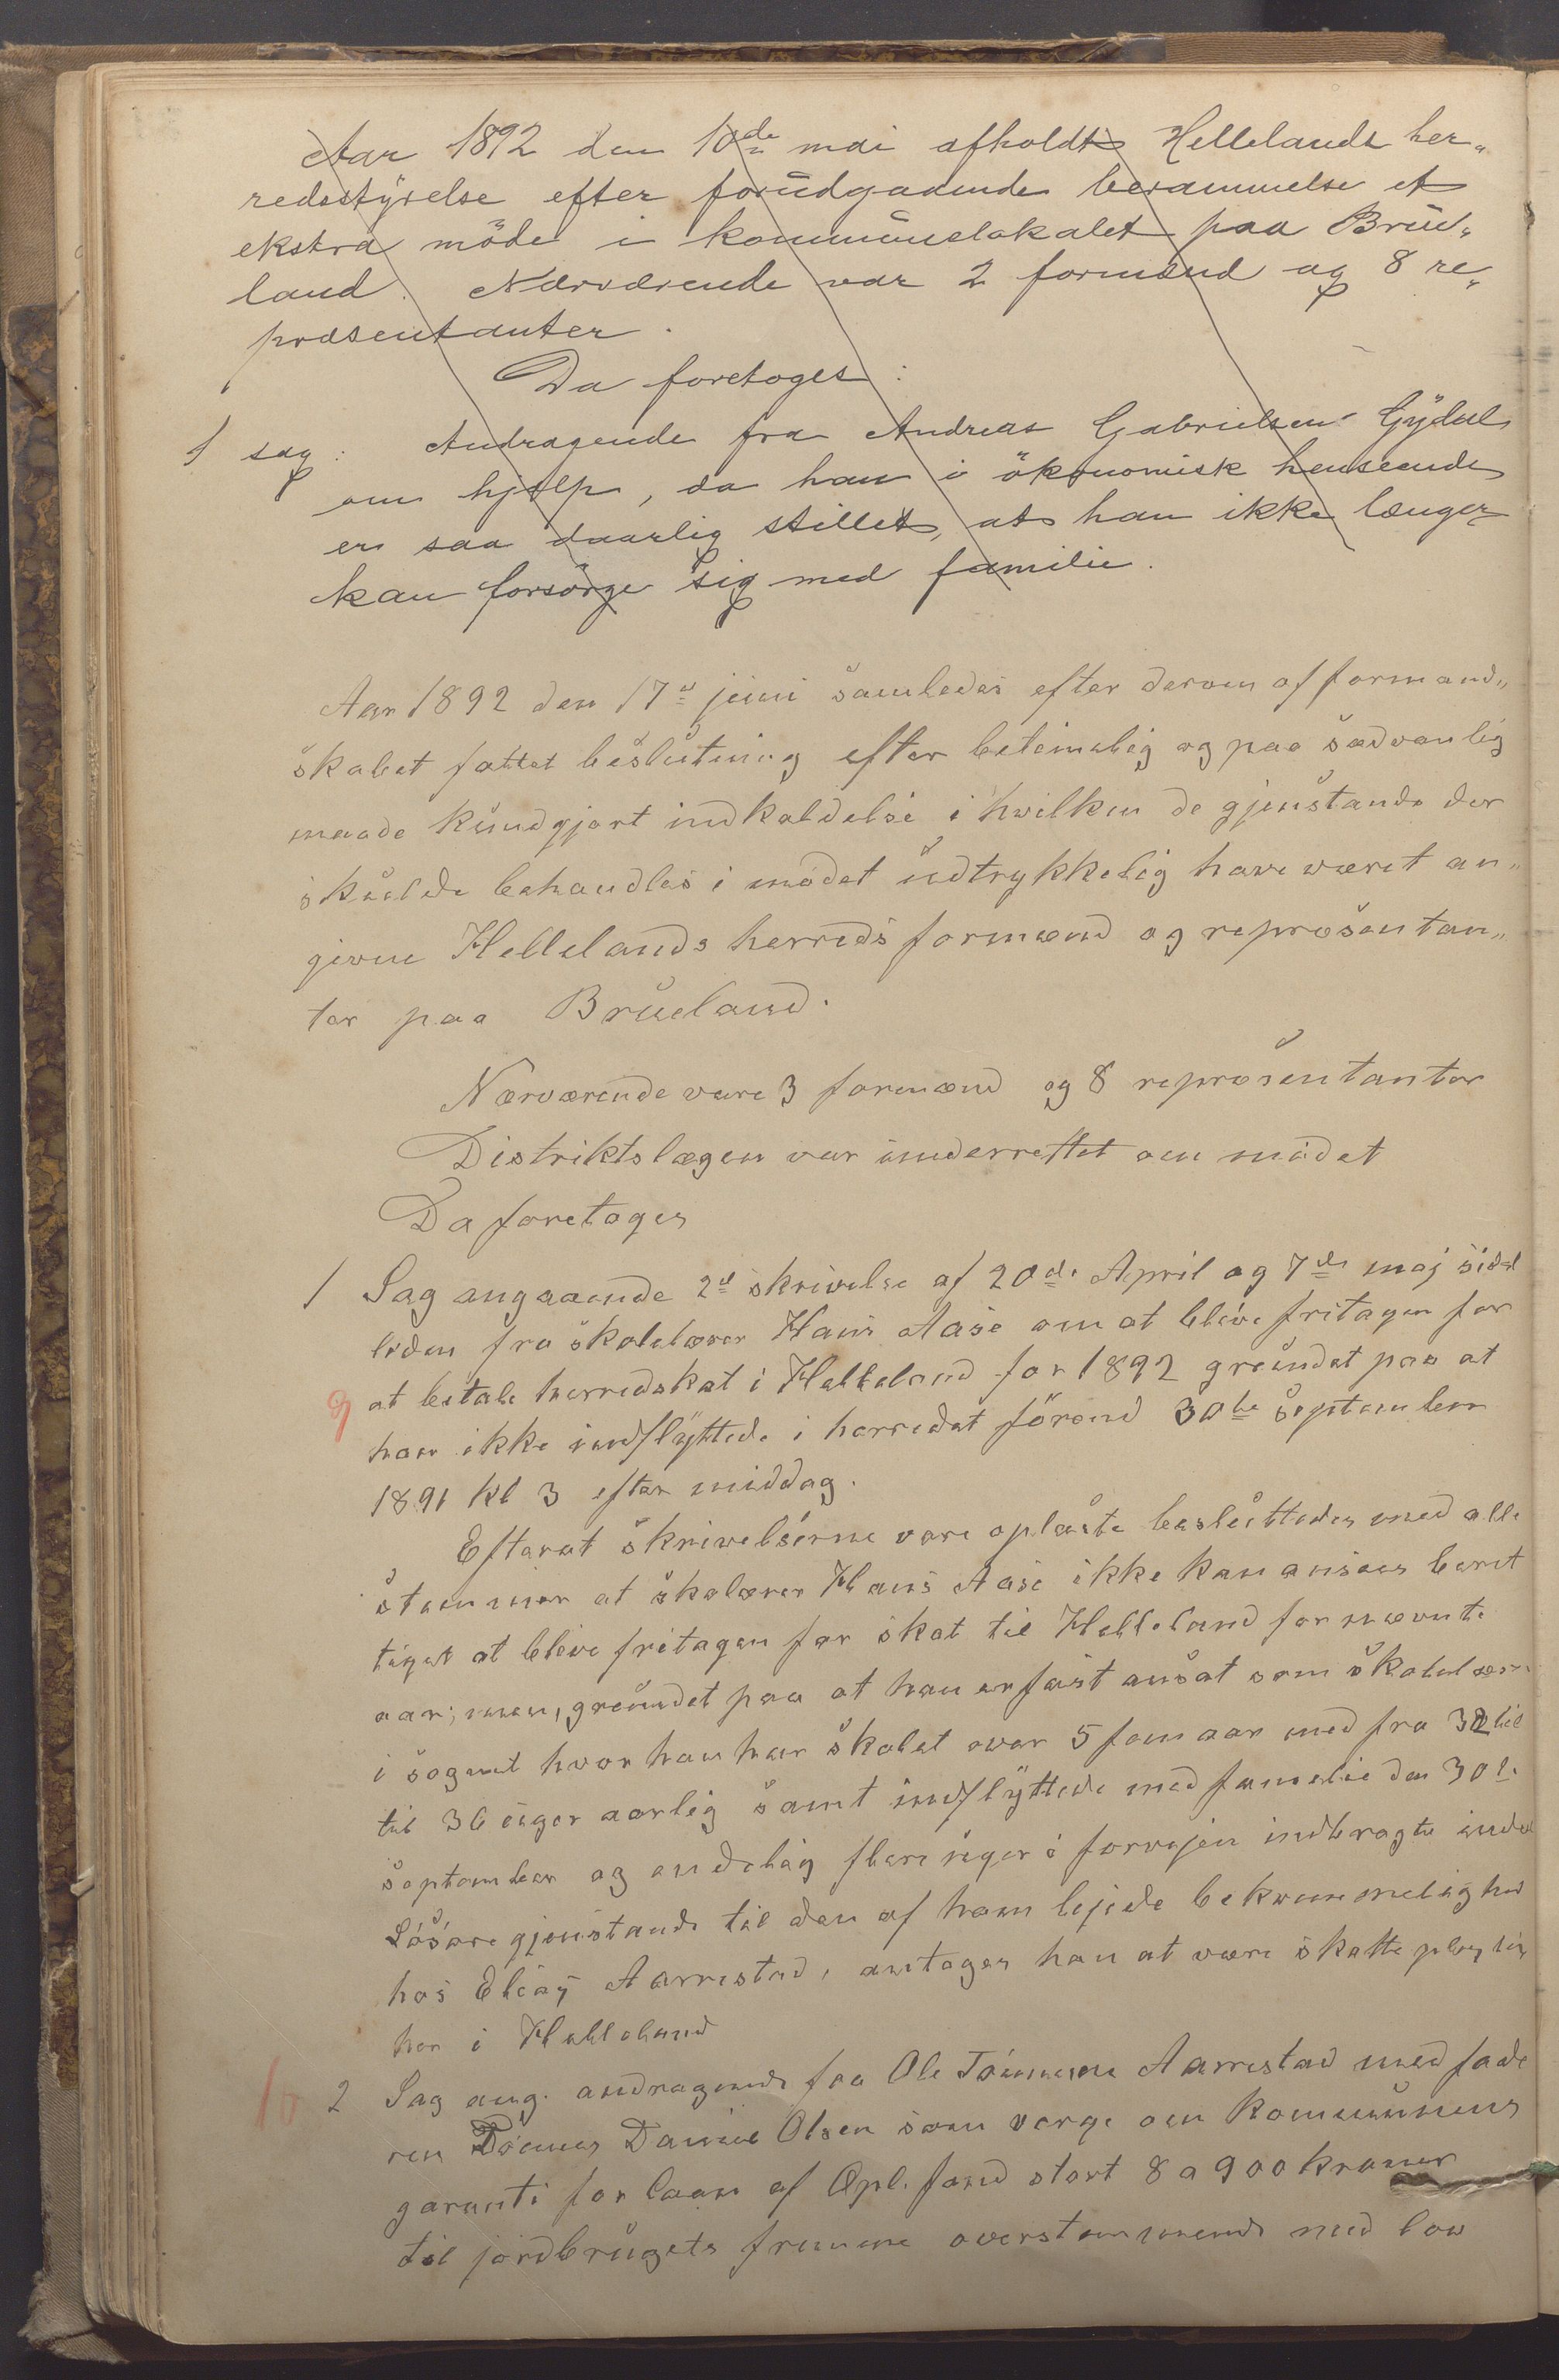 Aar 1892 den 10de mai afholdt Hellelands her„
redsstyrelse efter forudgaaende berammelse et
ekstra möde i kommunelokalet paa Brue„
land. Nærværende var 2 formænd og 8 re„
præsentanter.
Da foretoges:
1 sag: Andragende fra Andreas Gabrielsen Gydal
om hjælp, da han i ökonomisk henseende
er saa daarlig stillet, at han ikke længer
kan forsörge sig med familie.
Aar 1892 den 17d juni samledes efter derom af formand„
skabet fattet beslutning efter betimelig og paa sædvanlig
maade kundgjort indkaldelse i hvilken de gjenstande der
skulde behandles i mödet udtrykkelig have været an„
givne Hellelands herreds formænd og repræsentan„
ter paa Brueland.
Nærværende vare 3 formænd og 8 repræsentanter
Distriktslægen var underrettet om mödet
Da foretoges
1 Sag angaaende 2d skrivelse af 20de April og 7de maj sidst
leden fra skolelærer Hans Aase om at blive fritagen for
9 at betale herredskat i Helleland for 1892 grundet paa at
han ikke indflyttede i herredet förend 30te September
1891 kl 3 efter middag.
Efterat skrivelserne vare oplæste besluttedes med alle
stemmer at skolærer Hans Aase ikke kan ansees beret
tiget at blive fritagen for skat til Helleland for nævnte
aar; men, grundet paa at han er fast ansat som skolelærer
i sognet hvor han har skolet over 5 fem aar med fra 32 til
til 36 uger aarlig samt indflyttede med familie den 30te
september og endelig flere uger i forvejen indbragte endel
Lösöre gjenstande til den af ham lejede bekvemmelighed
hos Elias Aarrestad, antages han at være skattepligtig
her i Helleland
10 2 Sag ang. andragende fra Ole Tönnesen Aarrestad med fade
ren Tönnes Daniel Olsen som verge om Kommunens
garanti for laan af Opl. fond stort 8 a 900 kroner
til jordbrugets fremme overstemmende med lov